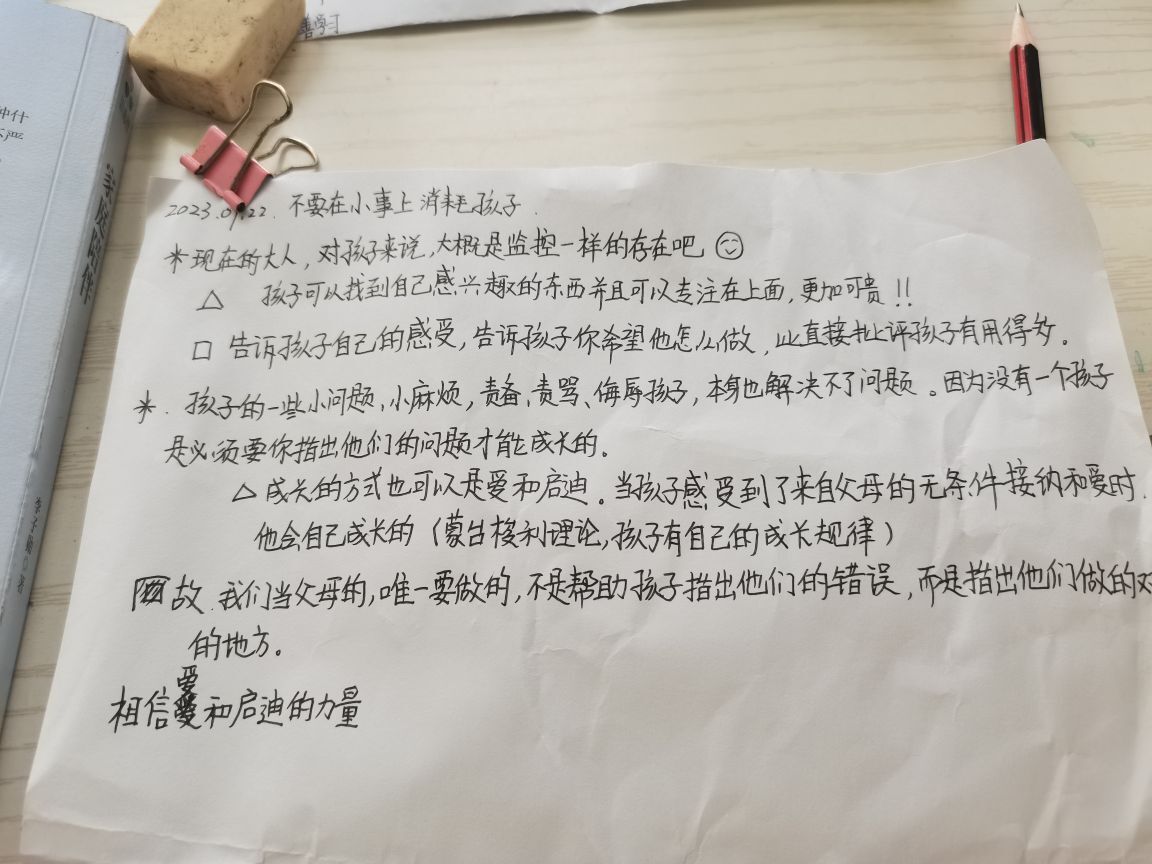 善学习
种什
严
亲庭陪伴
李子勋 著
2023.09.22. 不要在小事上消耗孩子.
*现在的大人, 对孩子来说, 大概是监控一样的存在吧
△ 孩子可以找到自己感兴趣的东西并且可以专注在上面, 更加可贵!!
□ 告诉孩子自己的感受, 告诉孩子你希望他怎么做, 比直接批评孩子有用得多。
*. 孩子的一些小问题、小麻烦, 责备、责骂、侮辱孩子, 本身也解决不了问题。因为没有一个孩子
是必须要你指出他们的问题才能成长的。
△ 成长的方式也可以是爱和启迪。当孩子感受到了来自父母的无条件接纳和爱时.
他会自己成长的 (蒙台梭利理论, 孩子有自己的成长规律)
故. 我们当父母的, 唯一要做的, 不是帮助孩子指出他们的错误, 而是指出他们做的对
的地方。
相信爱和启迪的力量